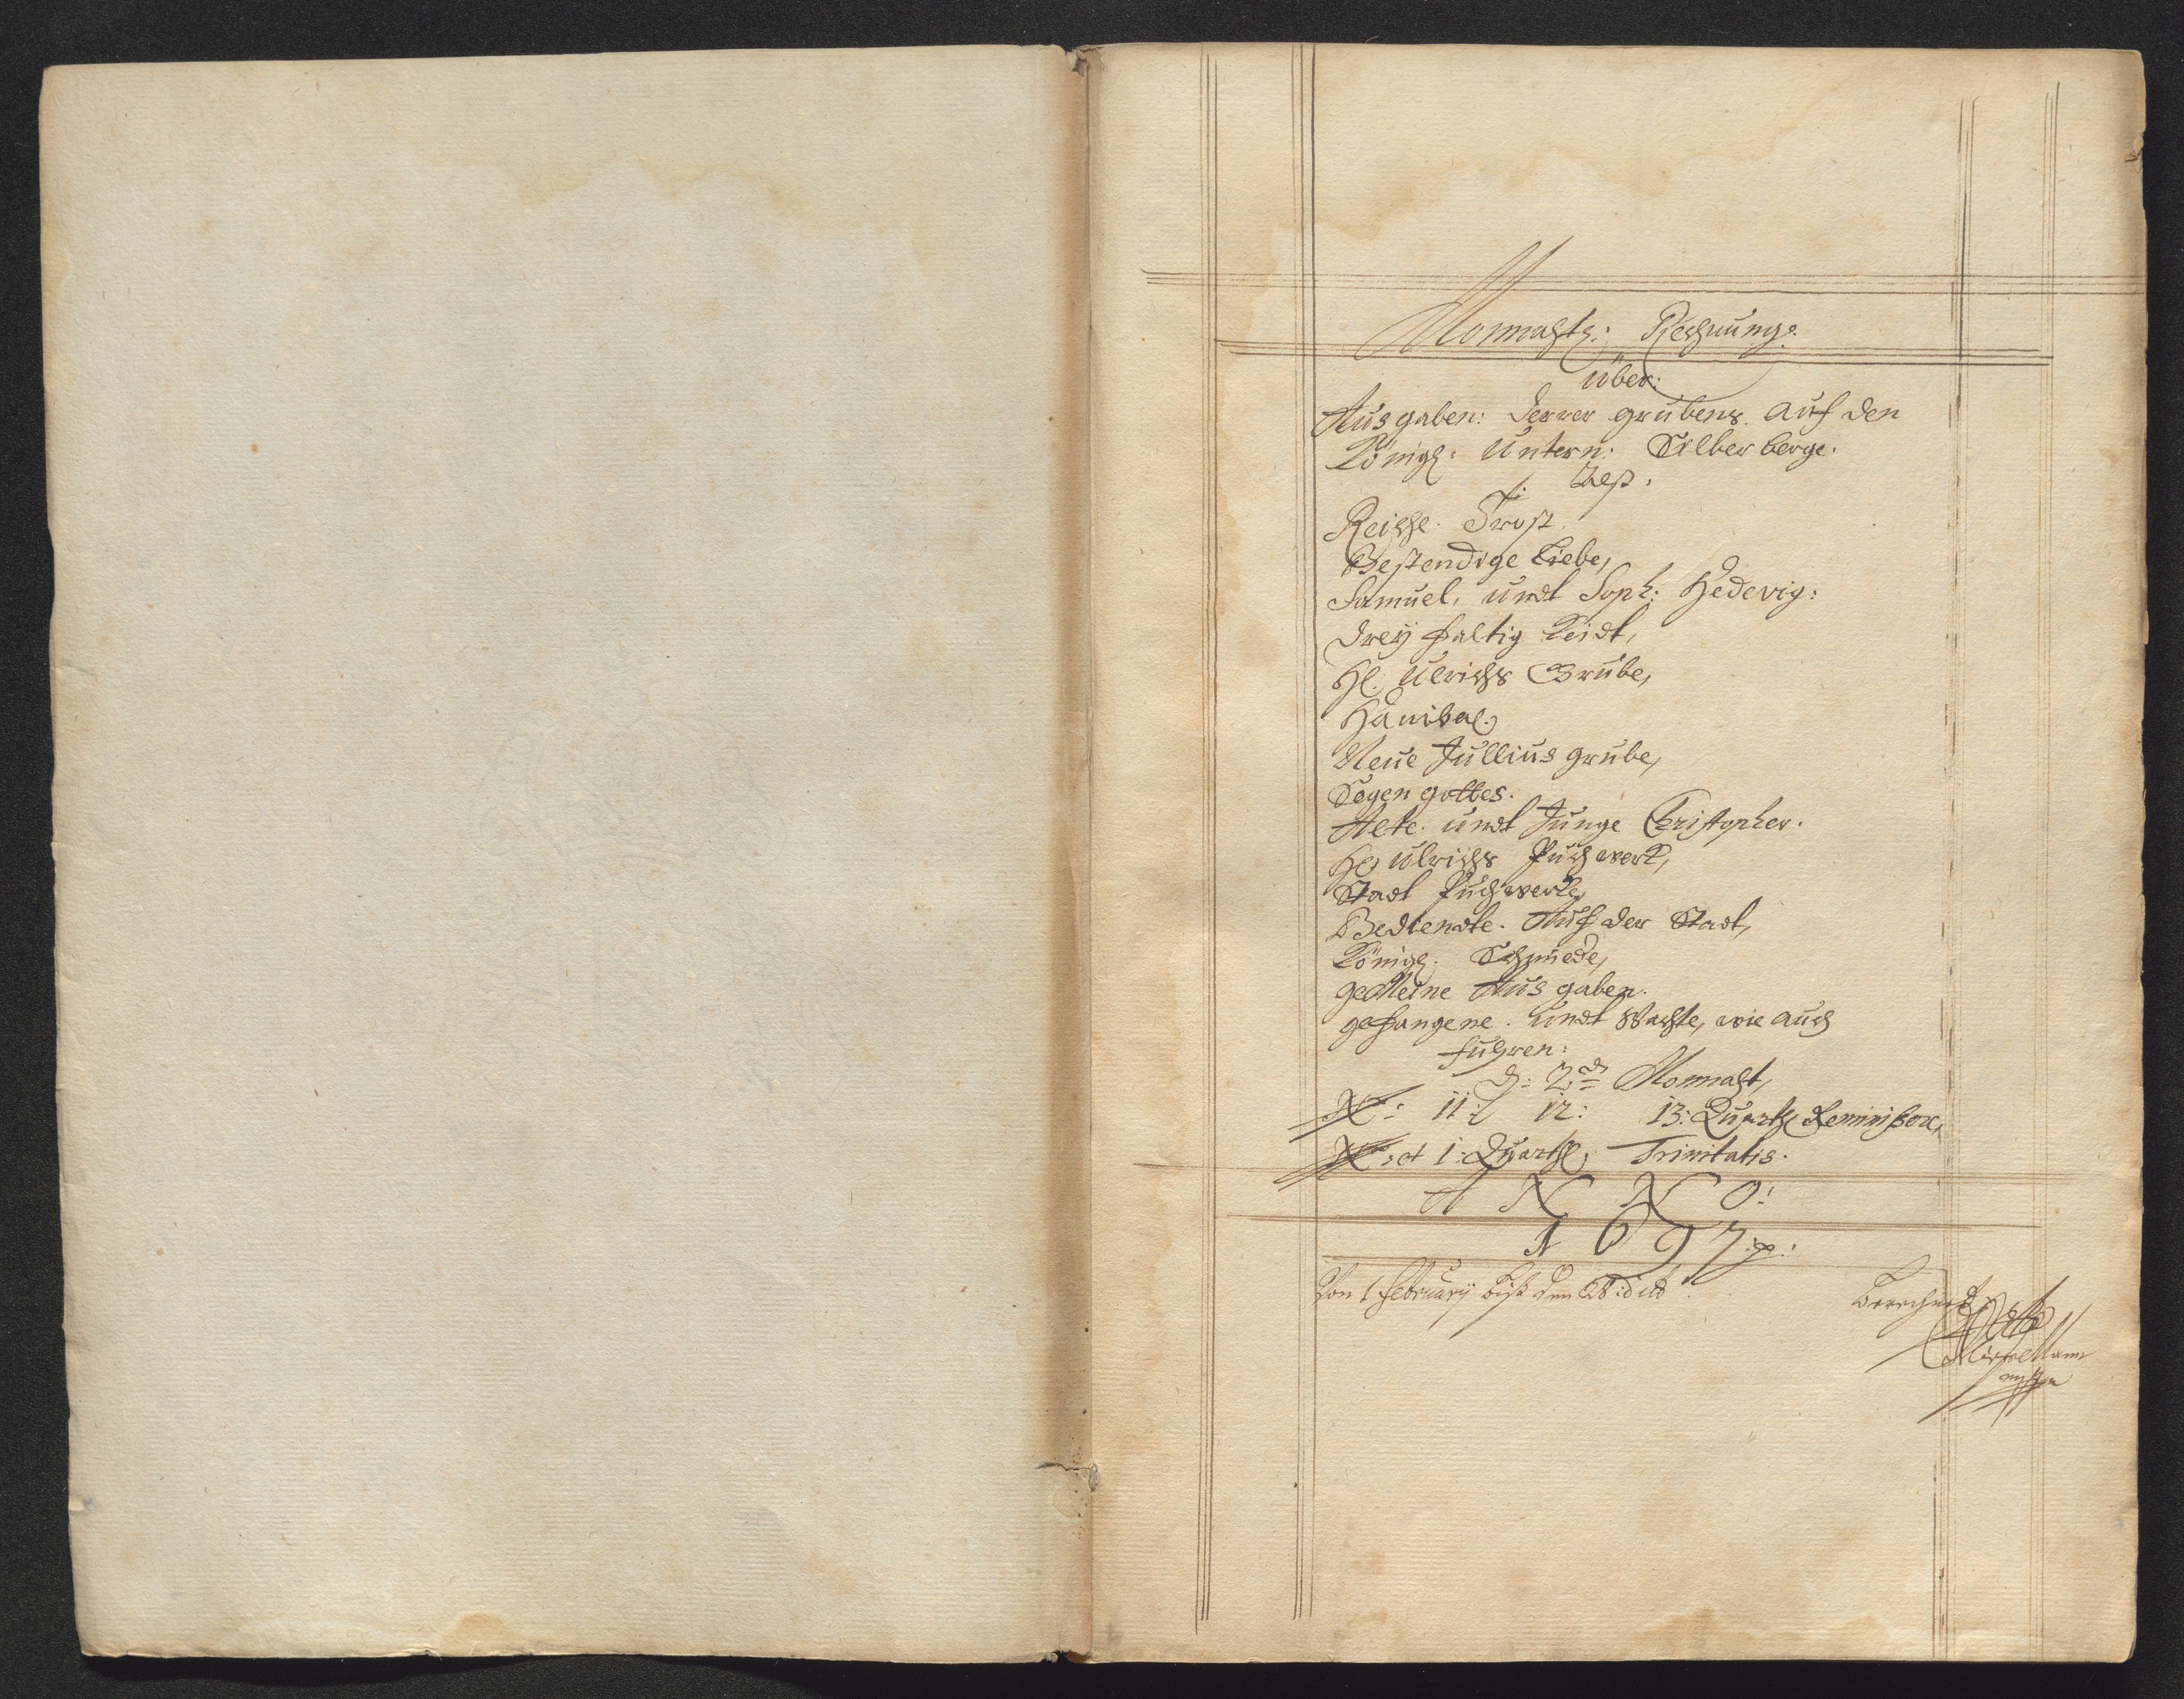 Monnahtl: Rechnung:
über:
Ausgaben: derrer grubens. auf den
Königl: Untern: Silber berge.
Alß:
Reiche Trost
Bestendige Liebe,
Samuel, undt Soph: Hedevig:
Dreÿ faltig Keidt,
Hl. Ulrichs Grube,
Hanibal.
Neüe Jullius grube,
Segen gottes.
Alte. undt Junge Christopher.
Hl. Ulrichs Puchwerk,
Stadt Puchwerk,
Bediendte. Auf der Stadt,
Königl. Schmiede,
gemeine Ausgaben.
gefangene. undt Wachte, wie auch
fuhren:
d: 2 Monnaht,
No: 11: 12: 13: Quartl Reminiscer,
No: et 1: Quartl, Trinitatis.
A N N O:
1697.
Von 1 February biß den 28: dito
Berechnet